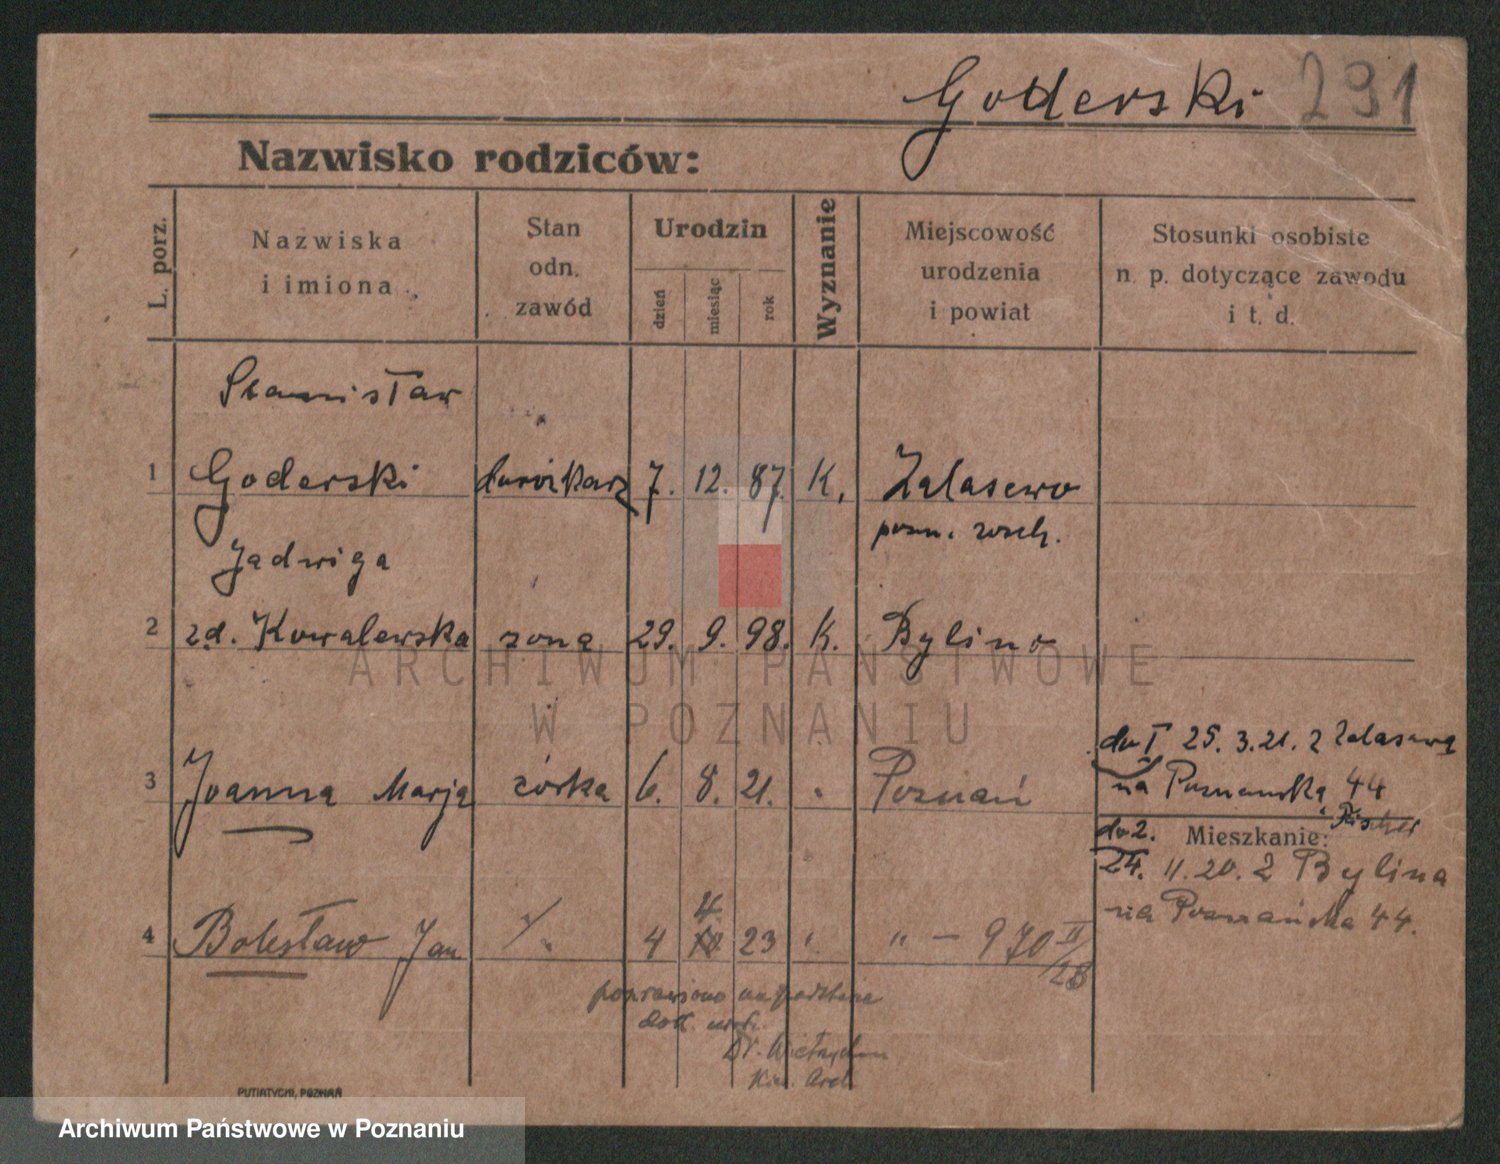 Goderski 291
Nazwisko rodziców:
L. porz.
Nazwiska
i imiona
Stan
odn.
zawód
Urodzin
dzień
miesiąc
rok
Wyznanie
Miejscowość
urodzenia
i powiat
Stosunki osobiste
n. p. dotyczące zawodu
i t. d.
Stanisław
1 Goderski dorożkarz 7. 12. 87. K. Zalasewo
Jadwiga
2 zd. Kowalewska żona 29. 9. 98. K. Bylino
ARCHIWUM PAŃSTWOWE
W POZNANIU
do 1 25. 3. 21. z Zalasewa
3 Joanna Marja córka 6. 8. 21. Poznań
na Poznańską 44
do 2. Mieszkanie:
24. 11. 20. z Bylina
na Poznańska 44.
4
4 Bolesław Jan 4 23 " — 970 II/28
poprawiono na podstawie
PUTIATYCKI, POZNAŃ
Archiwum Państwowe w Poznaniu